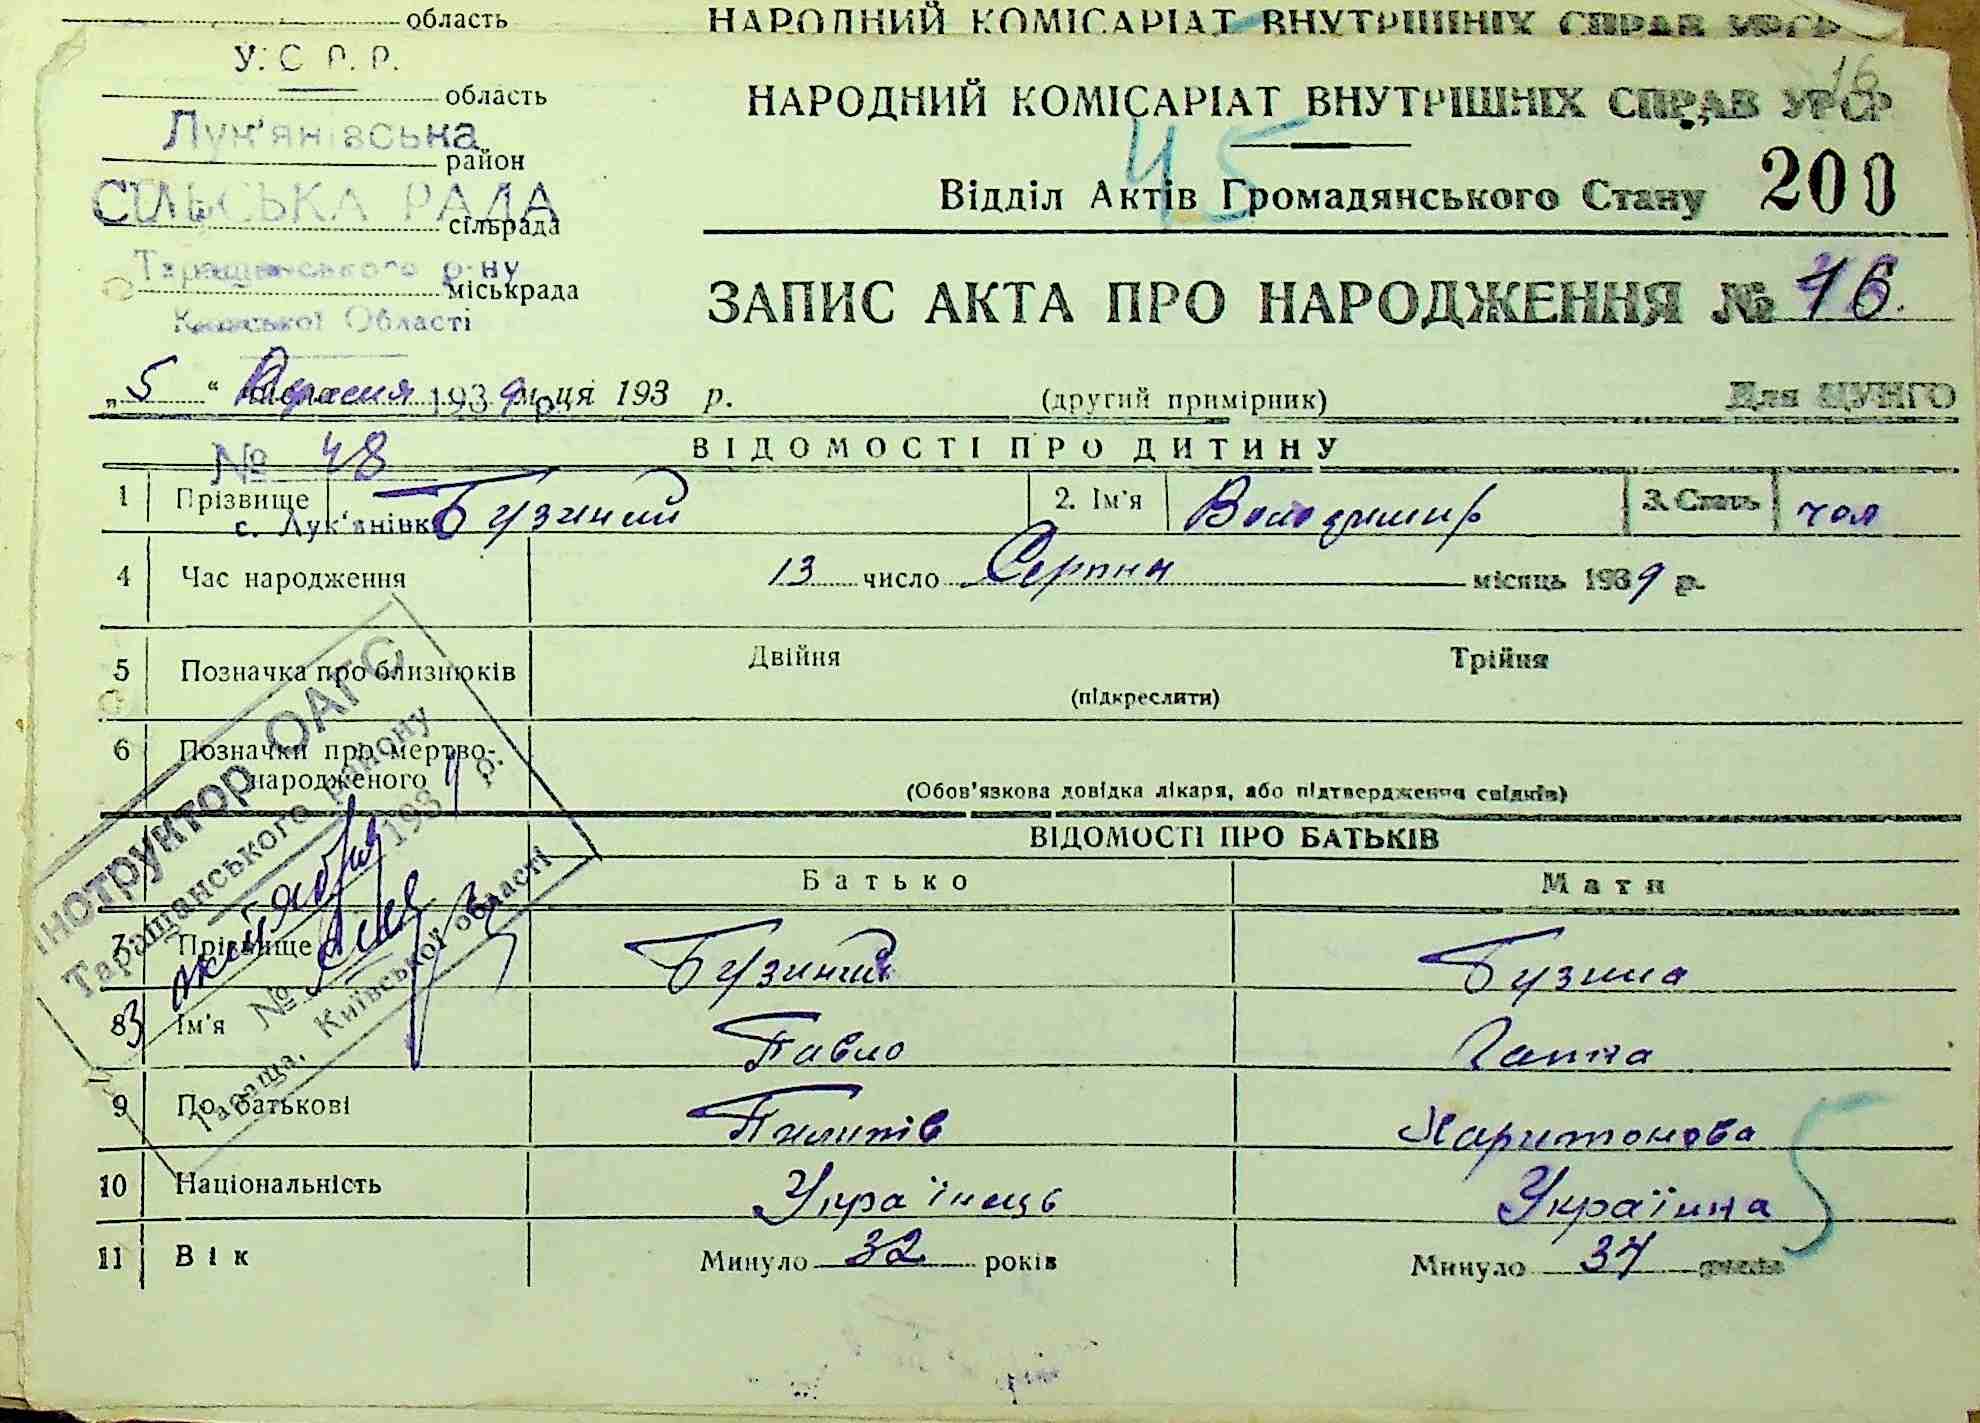 область
НАРОДНИЙ КОМІСАРІАТ ВНУТРІШНІХ СПРАВ УРСР
У. С. Р. Р.
область
16
НАРОДНИЙ КОМІСАРІАТ ВНУТРІШНІХ СПРАВ УРСР
Лук'янівська
район
45
Відділ Актів Громадянського Стану 200
СІЛЬСЬКА РАДА
сільрада
Таращанського р-ну
міськрада
Київської Області
ЗАПИС АКТА ПРО НАРОДЖЕННЯ № 16.
„5“ Вересня 1939 р. м-ця 193 р. (другий примірник) Для ЦУНГО
№ 48
ВІДОМОСТІ ПРО ДИТИНУ
1 Прізвище Бузиний 2. Ім'я Володимир 3. Стать чол
с. Лук'янівка
4 Час народження 13 число Серпня місяць 1939 р.
5 Позначка про близнюків Двійня Трійня
(підкреслити)
6 Позначки про мертво-
народженого (Обов'язкова довідка лікаря, або підтвердження свідків)
ВІДОМОСТІ ПРО БАТЬКІВ
Батько Мати
7 Прізвище Бузиний Бузина
8 Ім'я Павло Ганна
9 По батькові Пилипів Харитонова
10 Національність Українець Українка
11 Вік Минуло 32 років Минуло 34 років
5
Інструктор ОАГС
Таращанського району
193 9 р.
№
Тараща, Київської області